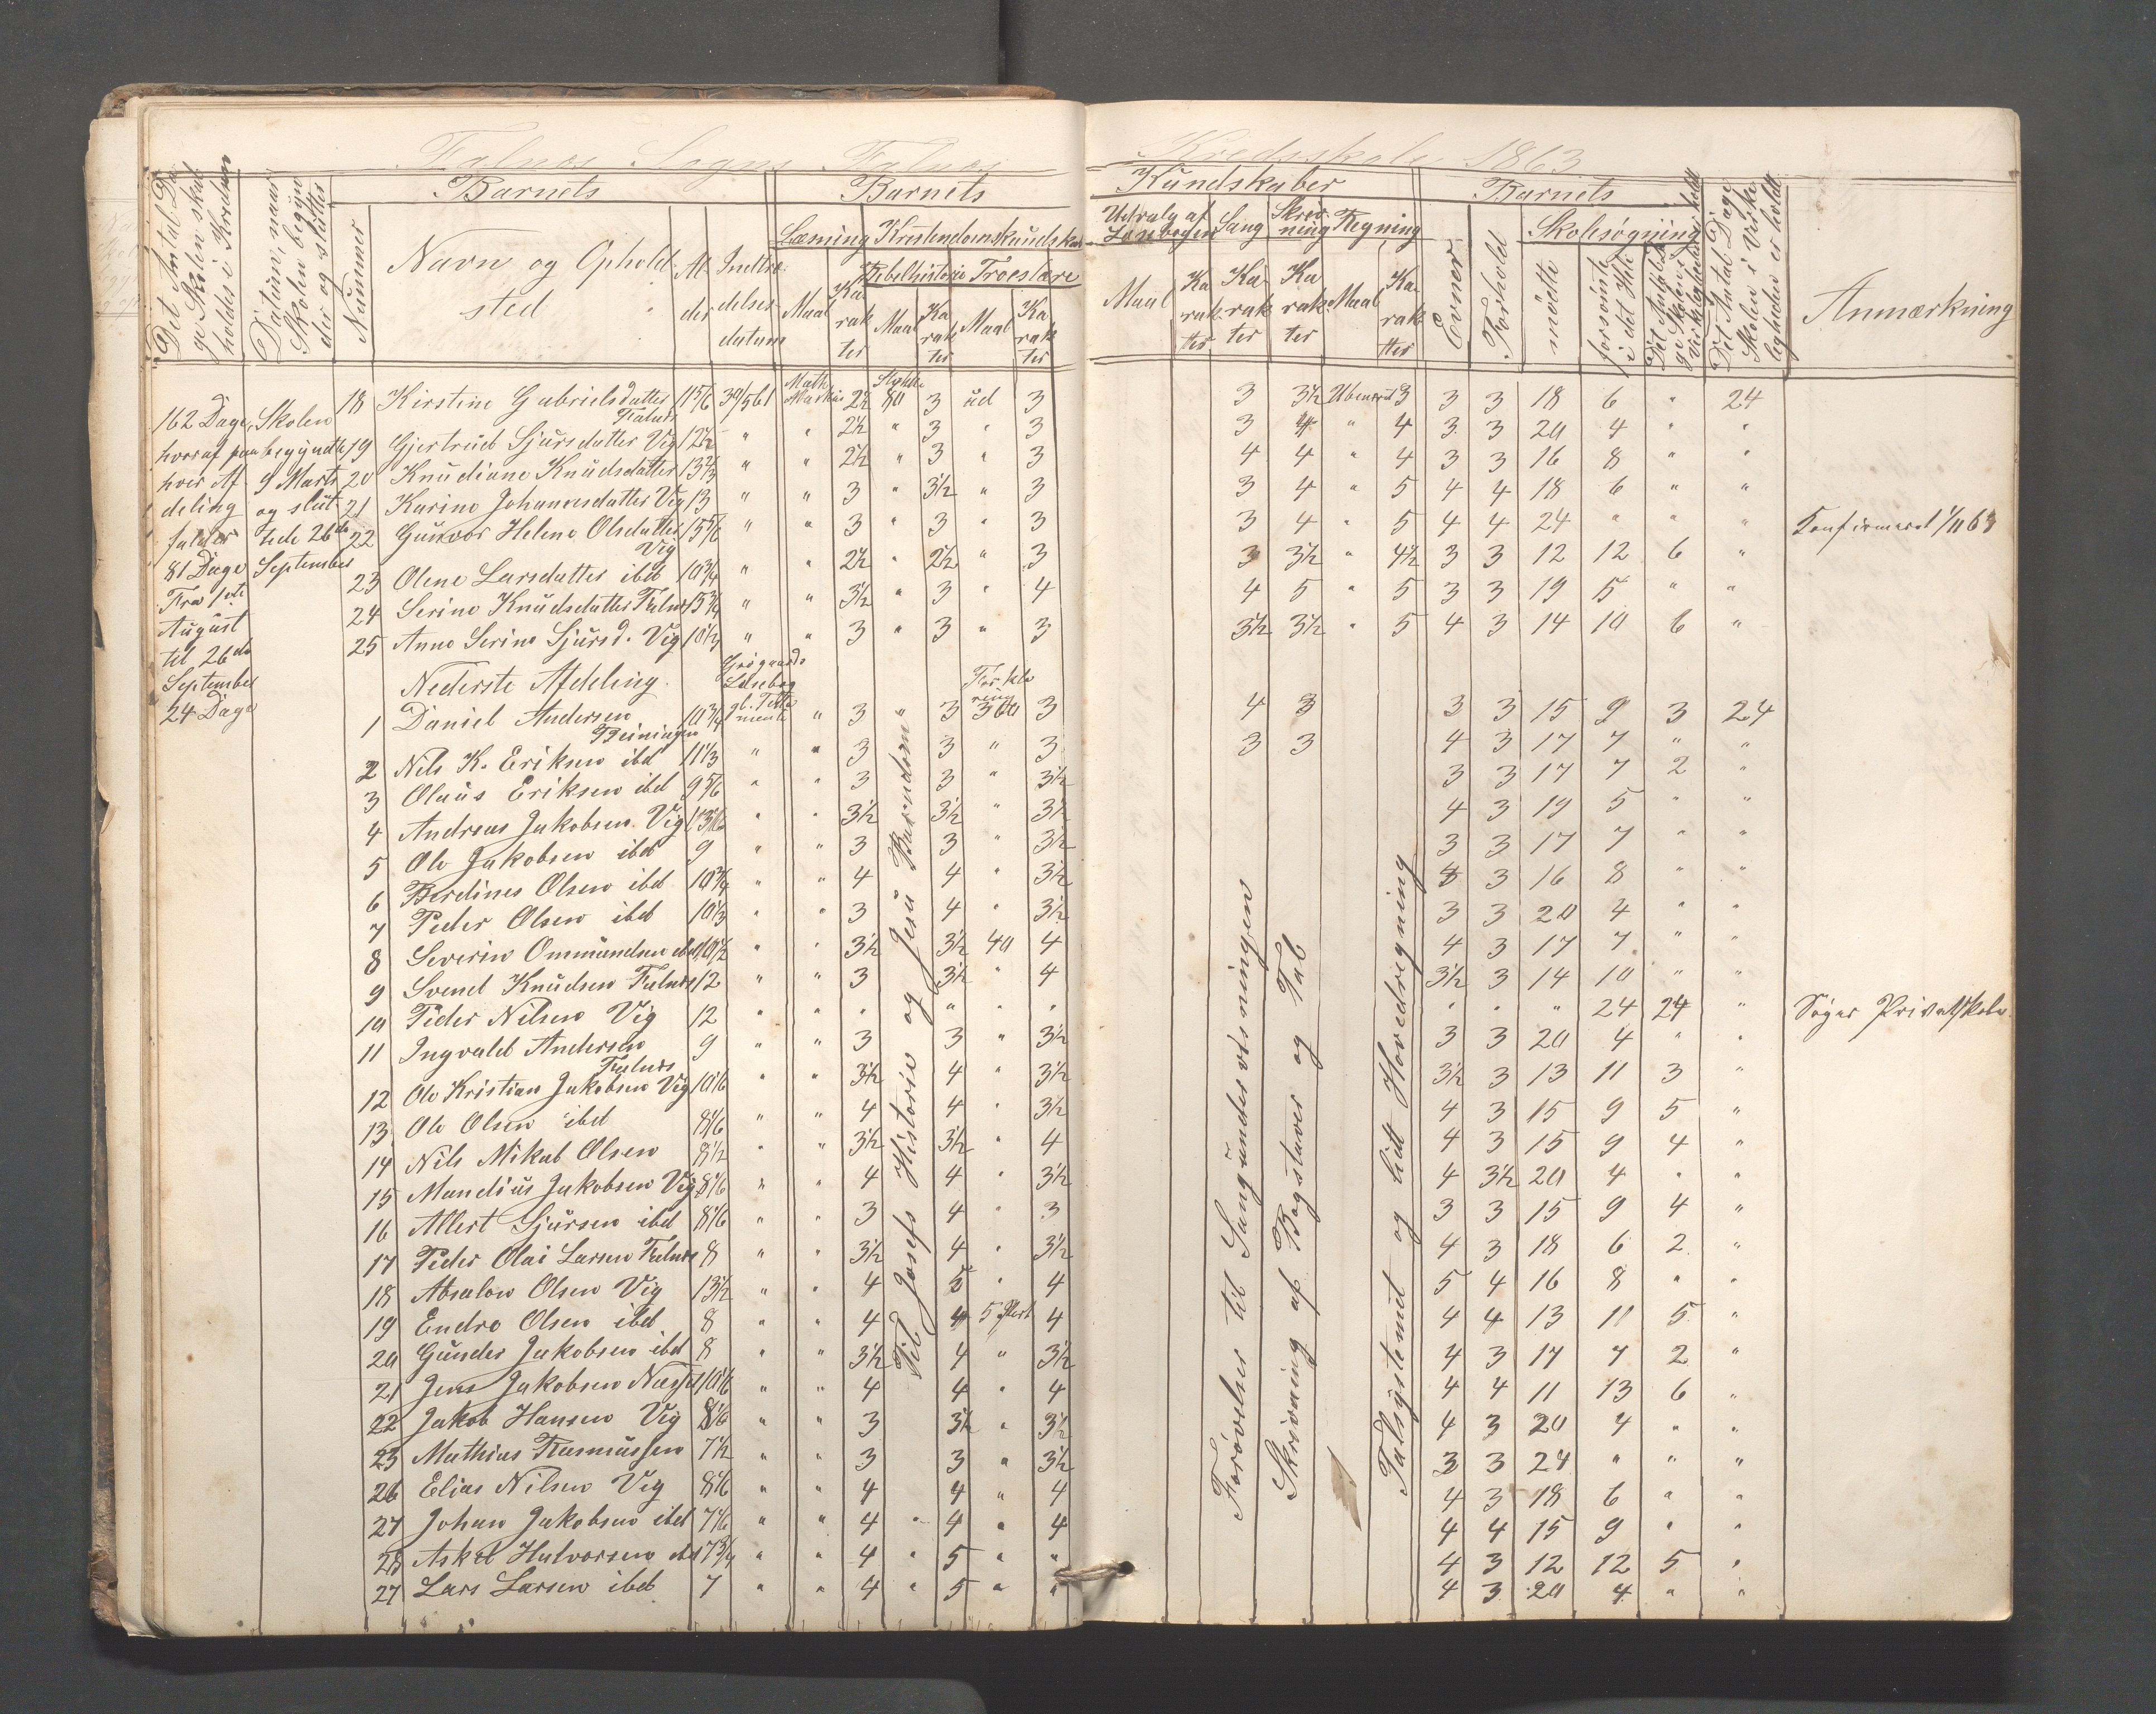 Falnæs Sogns Falnæs Kredsskole 1863
Det Antal Dage Skolen skal holdes i Kredsen
Datum, naar Skolen begynder og slutter
Nummer
Barnets
Navn og Opholdssted
Alder
Indtrædelsesdatum
Barnets Kundskaber
Læsning
Maal
Karakter
Kristendomskundskab
Bibelhistorie
Maal
Karakter
Troeslære
Maal
Karakter
Udvalg af Læsebogen
Maal
Karakter
Sang
Karakter
Skrivning
Karakter
Regning
Maal
Karakter
Barnets
Evner
Forhold
Skolesøgning
mødte
forsømte i det Hele
Det Antal Dage Skolen i Virkeligheden er holdt
Anmærkning
162 Dage,
hvoraf paa
hver Af
deling
falder
81 Dage
Fra 1ste
August
til 26de
September
24 Dage
Skolen
begyndte
9 Marts
og slut
tede 26de
September
18 Kirstine Gabrielsdatter Falnæs 11 5/6 Math Markus 2½ Stykke 80 3 ud 3 3 3½ Ubenævnt 3 3 3 18 6 " 24
19 Gjertrud Sjursdatter Vig 12½ " " 2½ " 3 " 3 3 4 " 4 3 3 20 4 " "
20 Knudiane Knudsdatter 13⅔ " " 2½ " 3 " 3 4 4 " 4 3 3 16 8 " "
21 Karine Johannesdatter Vig 13 " " 3 " 3½ " 3 3 4 " 5 4 4 18 6 " "
22 Gunvor Helene Olsdatter Vig 15 5/6 " " 3 " 3 " 3 3 4 " 5 4 4 24 " " " Konfirmeret 1/11 63
23 Olene Larsdatter ibd 10¾ " " 2½ " 2½ " 3 3 3½ " 4½ 3 3 12 12 6 "
24 Serine Knudsdatter Falnæs 15¾ " " 3½ " 3 " 4 4 5 " 5 3 3 19 5 " "
25 Anne Serine Sjursd. Vig 10⅓ " " 3 " 3 " 3 3½ 3½ " 5 4 3 14 10 6 "
Nederste Afdeling.
Grøgaards Læsebog gl. Testamente
Forklaring
1 Daniel Andersen 10¾ " 3 " 3 300 3 4 3 3 3 15 9 3 24
2 Nils K. Eriksen ibd 11⅓ " " 3 3 " 3 3 3 4 3 17 7 " "
3 Olaus Eriksen ibd 9 5/6 " " 3 3 " 3½ 3 3 17 7 2 "
4 Andreas Jakobsen Vig " " 3½ 3½ " 3½ 4 3 19 5 " "
5 Ole Jakobsen ibd 9 " " 3 3 " 3½ 3 3 17 7 " "
6 Berdines Olsen ibd 10¾ " " 4 4 " 3½ 3 3 16 8 " "
7 Peder Olsen ibd 10⅓ " " 3 4 " 3½ 3 3 20 4 " "
8 Severin Ommundsen ibd 10½ " " 3½ 3½ 40 4 4 3 17 7 " "
9 Svend Knudsen Falnæs 12 " " 3 3½ " 4 3½ 3 14 10 " "
10 Peder Nilsen Vig 12 " " " " " " " " " 24 24 " Søger Privatskole
11 Ingvald Andersen Falnæs 9 " " 3 3 " 3½ 3 3 20 4 " "
12 Ole Kristian Jakobsen Vig 10 1/6 " " 3½ 4 " 3½ 3½ 3 13 11 3 "
13 Ole Olsen ibd 8 1/6 " " 4 4 " 3½ 4 3 15 9 5 "
14 Nils Mikal Olsen 8½ " " 3½ 3½ " 4 4 3 15 9 4 "
15 Mandius Jakobsen Vig 8 1/6 " " 4 4 " 3½ 4 3½ 20 4 " "
16 Allert Sjursen ibd 8 1/6 " " 3 4 " 3 3 3 15 9 4 "
17 Peder Olai Larsen Falnæs 8 " " 3½ 4 " 3½ 4 3 18 6 2 "
18 Absalon Olsen Vig 13½ " " 4 5 " 4 5 4 16 8 " "
19 Endre Olsen ibd 8 " " 4 4 5 Part 4 4 4 13 11 5 "
20 Gunder Jakobsen ibd 8 " " 3½ 4 " 3½ 4 3 17 7 2 "
21 Jens Jakobsen 10 1/6 " " 4 4 " 4 4 4 11 13 6 "
22 Jakob Hansen Vig 8 1/6 " " 3 3½ " 3½ 4 3 20 4 " "
23 Mathias Rasmussen 7½ " " 3 3 " 3½ 3 3 24 " " "
26 Elias Nilsen Vig 8 1/6 " " 4 4 " 4 4 3 18 6 " "
27 Johan Jakobsen ibd 7 1/6 " " 4 " 4 " 4 4 4 15 9 " "
28 Askel Halvorsen ibd 7¾ " " 4 " 5 " " 4 3 12 12 5 "
27 Lars Larsen ibd 7 " " 4 " 5 " " 4 3 20 4 " "
Til Josefs Historie og Jesu Barndom
Forøvelser til Sangundervisningen
Skrivning af Bogstaver og Tal
Talsystemet og lidt Hovedregning